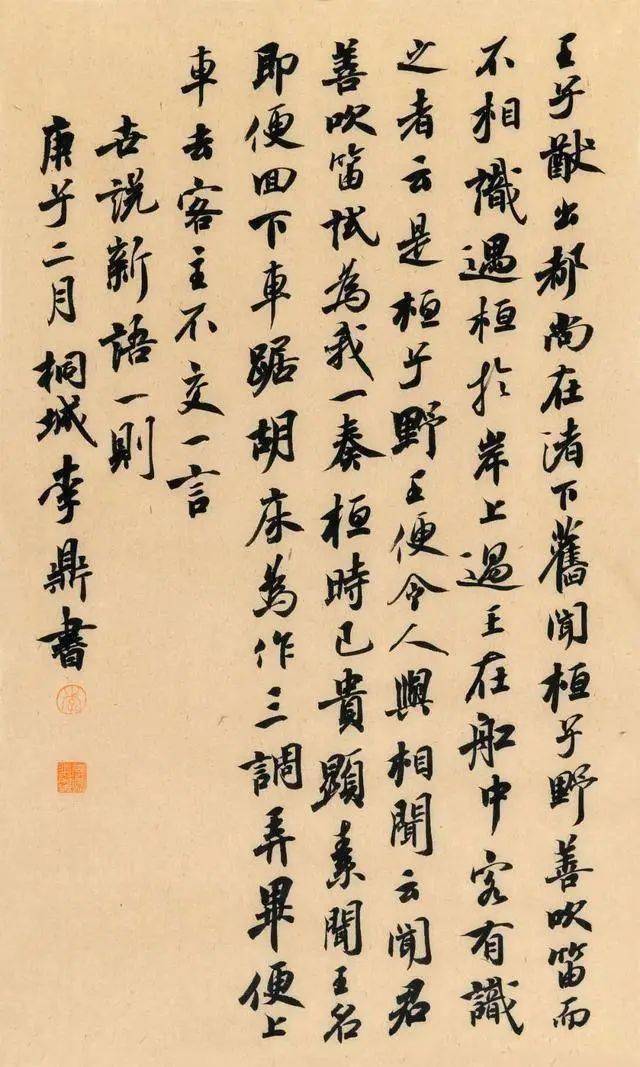 王子猷出都尚在渚下舊聞桓子野善吹笛而
不相識遇桓於岸上過王在船中客有識
之者云是桓子野王便令人與相聞云聞君
善吹笛試為我一奏桓時已貴顯素聞王名
即便回下車踞胡床為作三調弄畢便上
車去客主不交一言
世説新語一則
庚子二月桐城李鼎書
李